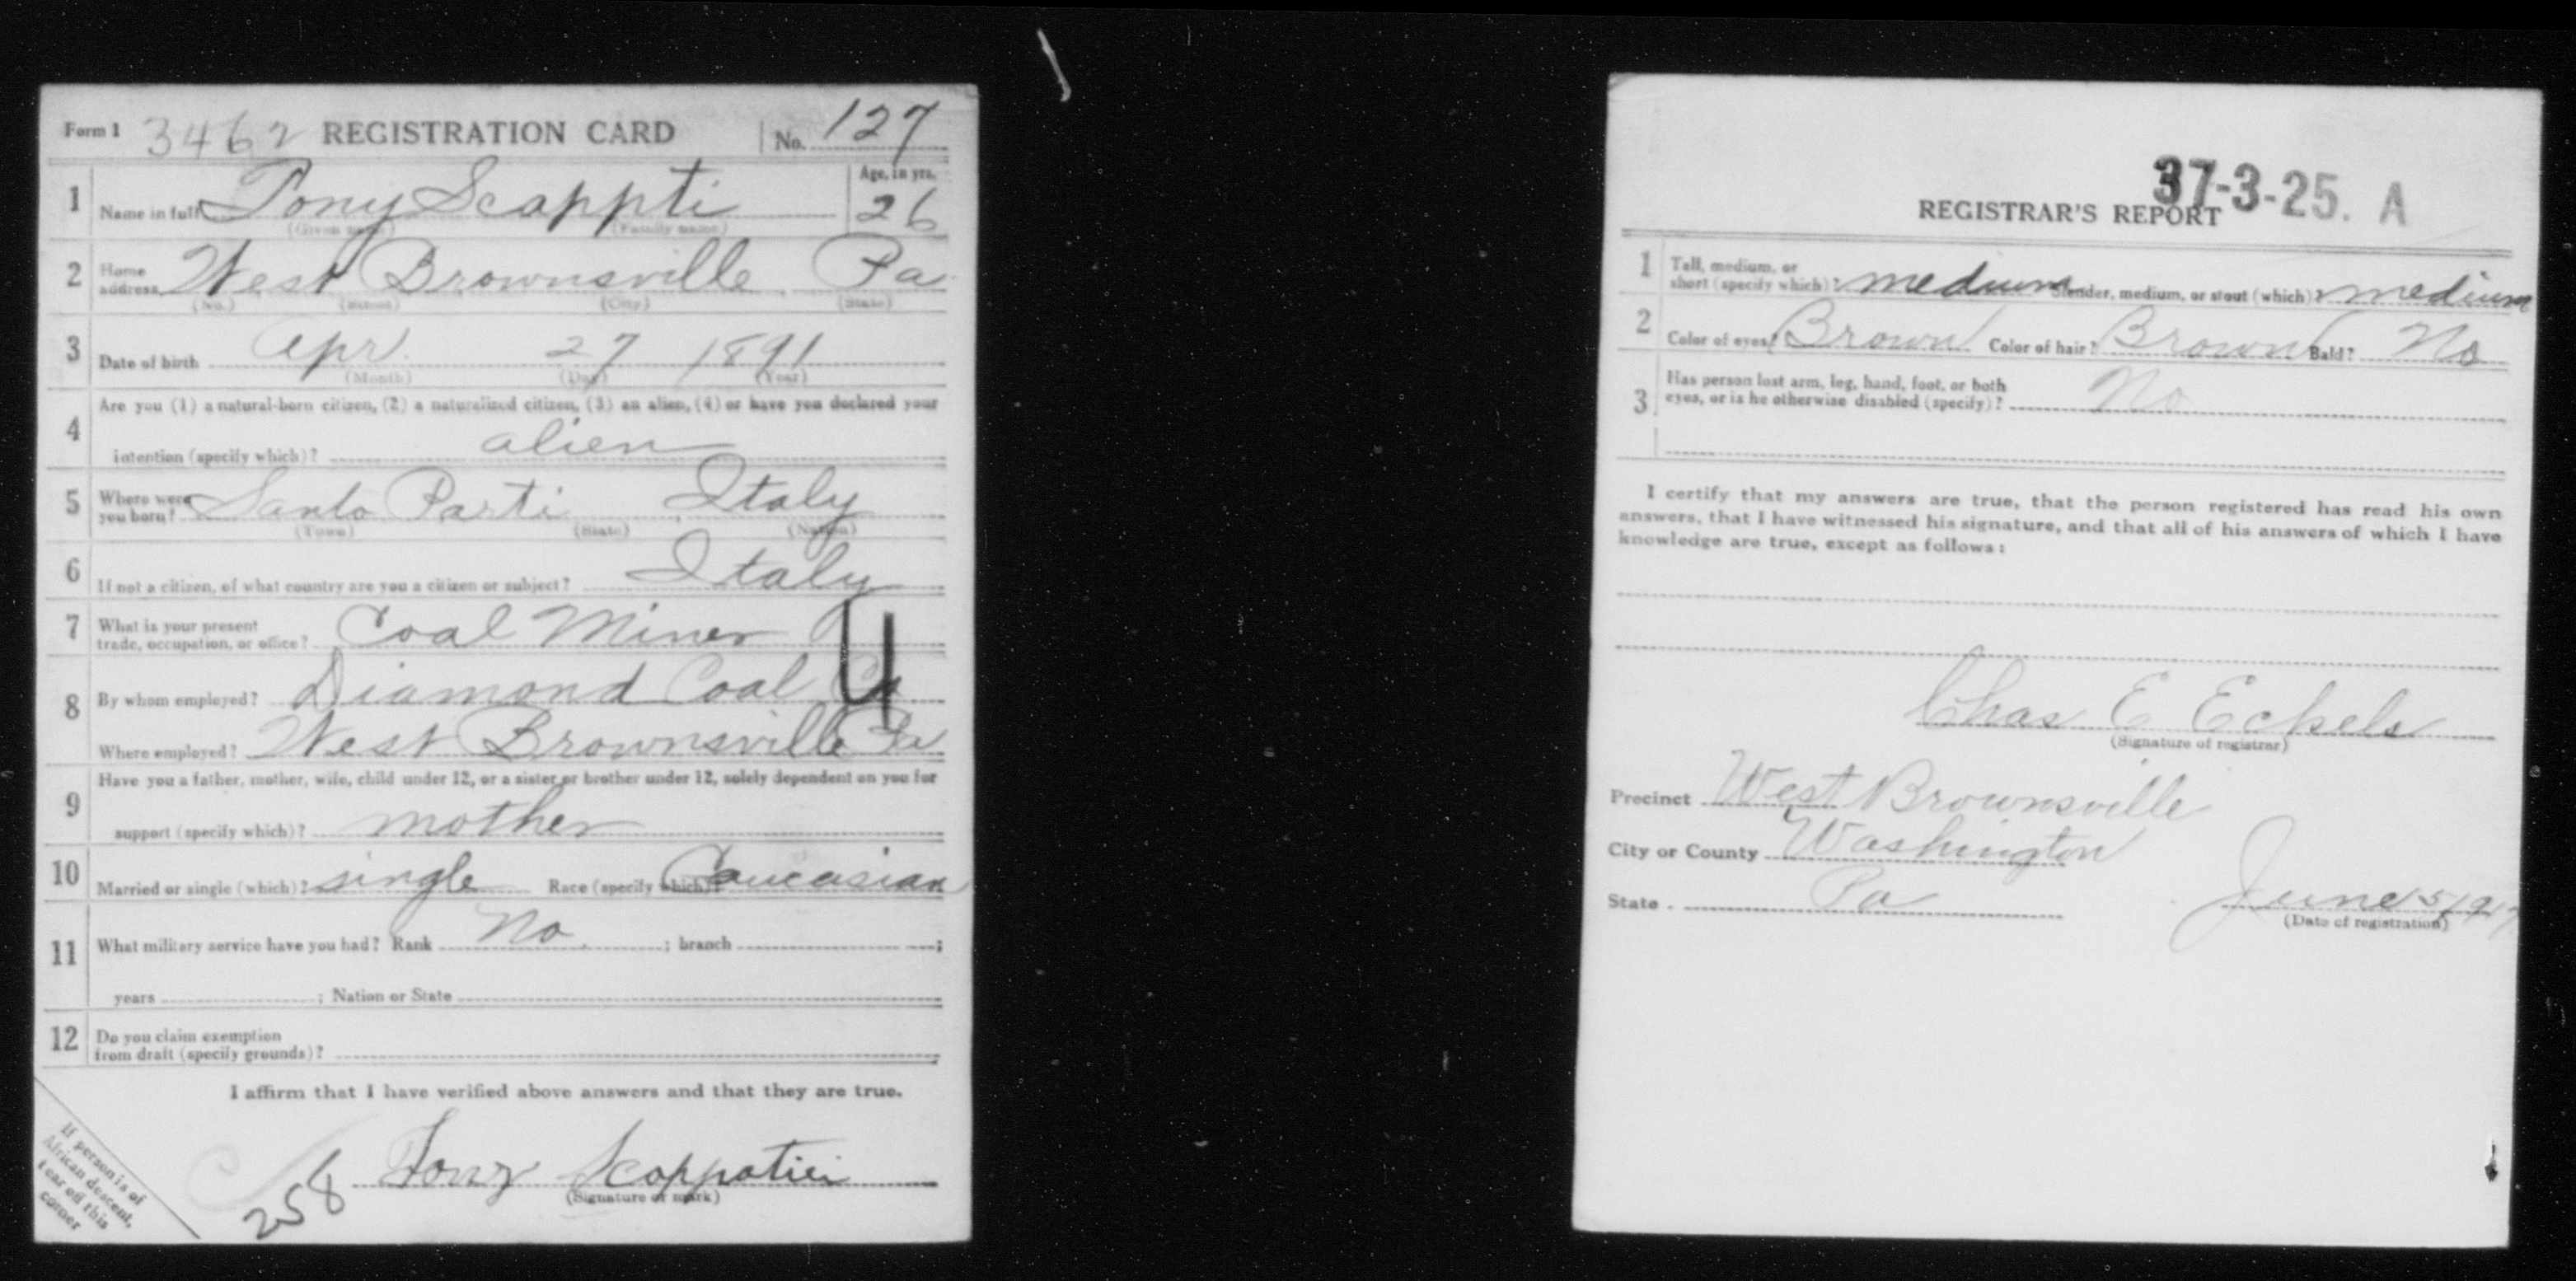 Form 1 3462 REGISTRATION CARD No. 127
1 Name in full Tony Scappti Age, in yrs. 26
(Given name) (Family name)
2 Home address West Brownsville Pa
(No.) (Street) (City) (State)
3 Date of birth Apr. 27 1891
(Month) (Day) (Year)
4 Are you (1) a natural-born citizen, (2) a naturalized citizen, (3) an alien, (4) or have you declared your
intention (specify which)? alien
5 Where were you born? Santo Parti Italy
(Town) (State) (Nation)
6 If not a citizen, of what country are you a citizen or subject? Italy
7 What is your present
trade, occupation, or office? Coal Miner
8 By whom employed? Diamond Coal Co
Where employed? West Brownsville Pa
4
9 Have you a father, mother, wife, child under 12, or a sister or brother under 12, solely dependent on you for
support (specify which)? mother
10 Married or single (which)? single Race (specify which)? Caucasian
11 What military service have you had? Rank No ; branch ;
years ; Nation or State
12 Do you claim exemption
from draft (specify grounds)?
I affirm that I have verified above answers and that they are true.
258 Tony Scappaticci
(Signature or mark)
If person is of
African descent,
tear off this
corner
37-3-25. A
REGISTRAR'S REPORT
1 Tall, medium, or
short (specify which)? medium Slender, medium, or stout (which)? medium
2 Color of eyes? Brown Color of hair? Brown Bald? No
3 Has person lost arm, leg, hand, foot, or both
eyes, or is he otherwise disabled (specify)? No
I certify that my answers are true, that the person registered has read his own
answers, that I have witnessed his signature, and that all of his answers of which I have
knowledge are true, except as follows:
Chas E Eckels
(Signature of registrar)
Precinct West Brownsville
City or County Washington
State Pa June 5, 1917
(Date of registration)